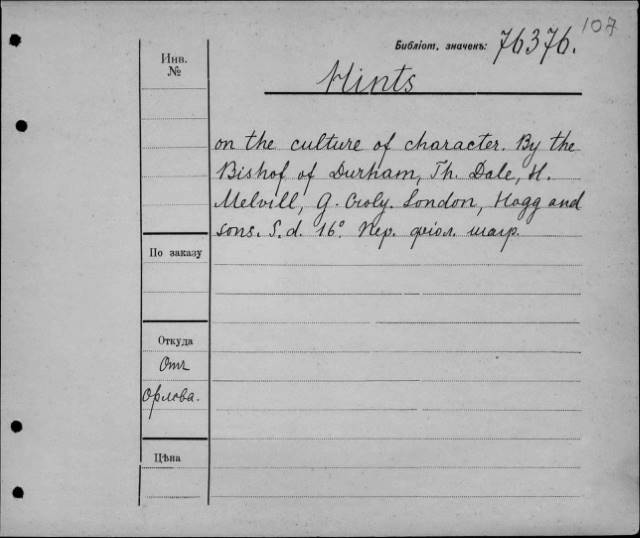 107
Библіот. значекъ: 76376.
Инв.
№
Hints
on the culture of character. By the
Bishof of Durham, Th. Dale, H.
Melvill, G. Croly. London, Hogg and
sons. S. d. 16°. Пер. фіол. шагр.
По заказу
Откуда
Отъ
Орлова.
Цѣна